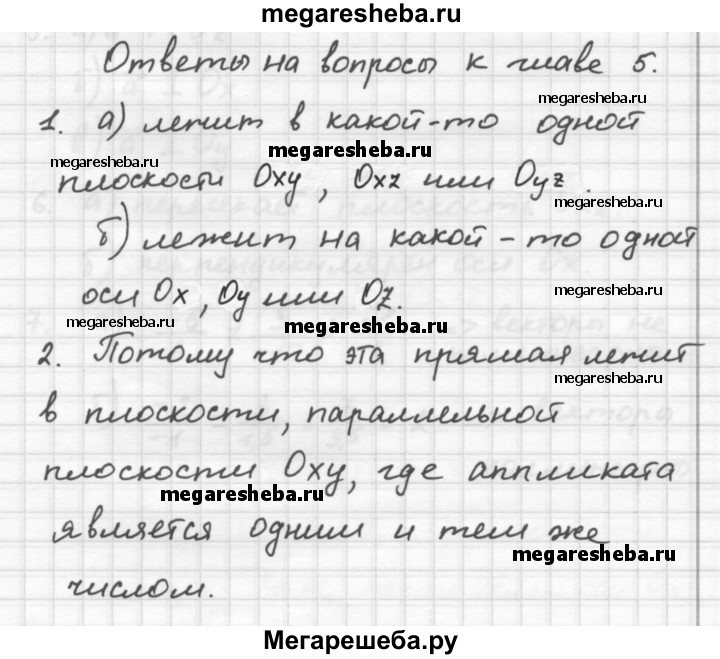 megaresheba.ru
Ответы на вопросы к главе 5.
megaresheba.ru
1. а) лежит в какой-то одной
megaresheba.ru
megaresheba.ru
плоскости Oxy, Oxz или Oyz.
megaresheba.ru
б) лежит на какой-то одной
оси Ox, Oy или Oz.
megaresheba.ru
megaresheba.ru
megaresheba.ru
2. Потому что эта прямая лежит
megaresheba.ru
в плоскости, параллельной
плоскости Oxy, где аппликата
megaresheba.ru
является одним и тем же
megaresheba.ru
числом.
Мегарешеба.ру